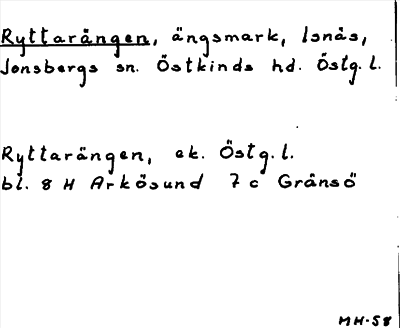 Ryttarängen, ängsmark, Isnäs,
Jonsbergs sn. Östkinds hd. Östg.l.
Ryttarängen, ek. Östg.l.
bl. 8 H Arkösund 7 c Gränsö
MH-58